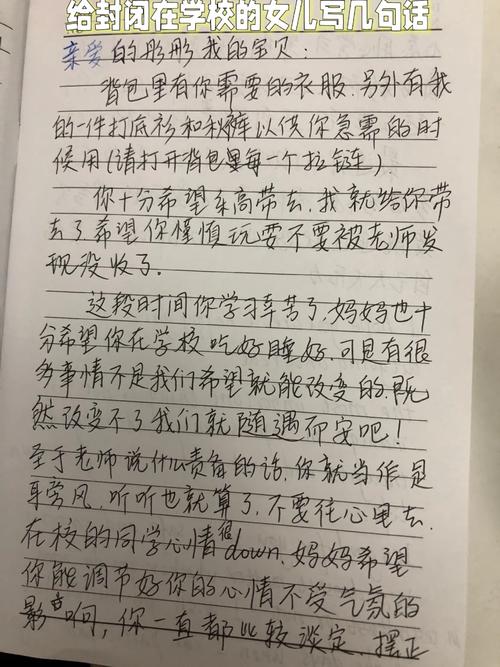 给封闭在学校的女儿写几句话
亲爱的彤彤我的宝贝：
背包里有你需要的衣服.另外有我
的一件打底衫和秋裤以供你急需的时
候用(请打开背包里每一个拉链).
你十分希望乐高带去.我就给你带
去了希望你谨慎玩耍不要被老师发
现没收了.
这段时间你学习辛苦了,妈妈也十
分希望你在学校吃好睡好.可是有很
多事情不是我们希望就能改变的.既
然改变不了我们就随遇而安吧!
至于老师说什么责备的话.你就当作是
耳旁风.听听也就算了.不要往心里去.
在校的同学心情很down.妈妈希望
你能调节好你的心情不受气氛的
影响,你一直都比较淡定.摆正